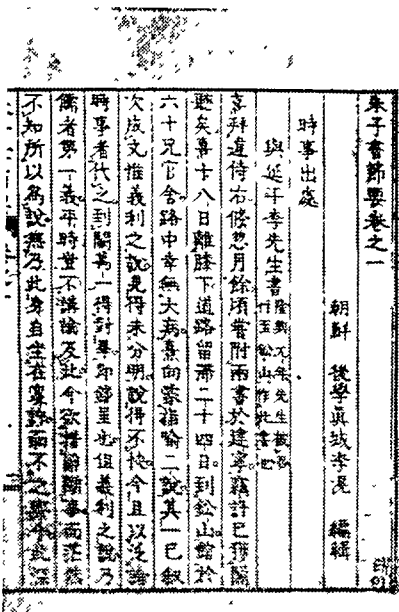 朱子書節要卷之一
朝鮮 後學眞城李滉 編輯
時事出處
與延平李先生書
熹拜違侍右倏忽月餘頃嘗附兩書於建寧竊計已獲關
聽矣熹十八日離膝下道路留滯二十四日到鉛山館於
六十兄官舍路中幸無大病熹向蒙指喻二說其一已敘
次成文惟義利之說見得未分明說得不快今且以泛論
時事者代之到闕萬一得對畢即錄呈也但義利之說乃
儒者第一義平時豈不講論及此今欲措辭斷事而茫然
不知所以爲說無乃此身自坐在裏許而不之察乎此深